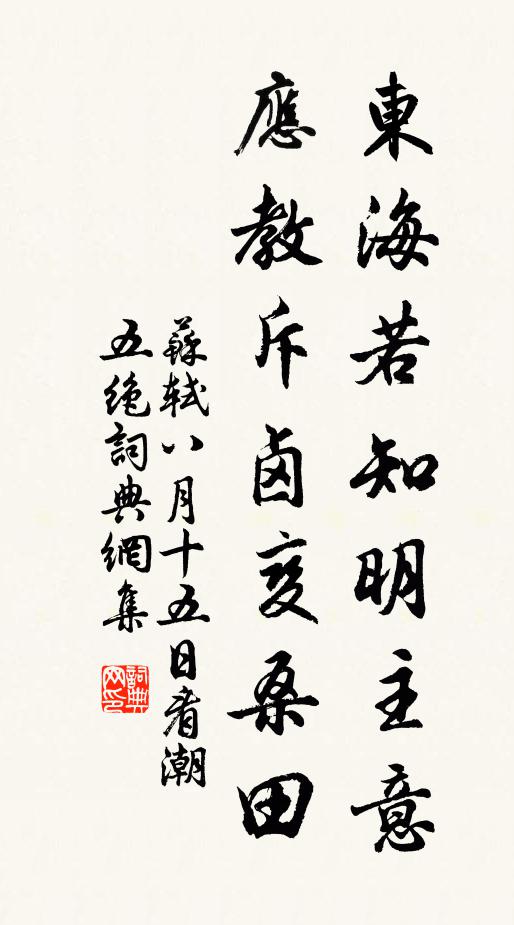 東海若知明主意
應教斥鹵變桑田
蘇軾八月十五日看潮
五絶詞典網集
詞典
网印